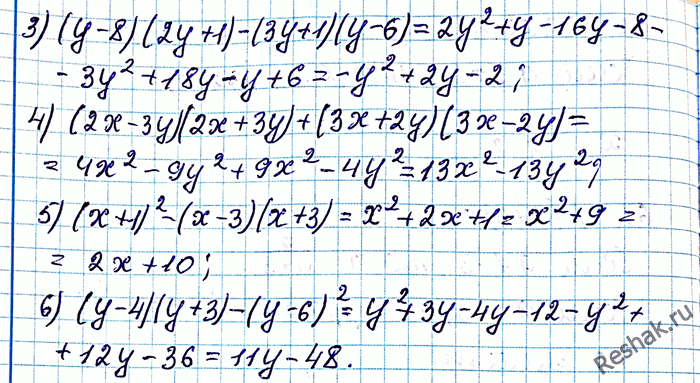 3) (y-8)(2y+1)-(3y+1)(y-6)=2y²+y-16y-8-
-3y²+18y-y+6=-y²+2y-2;
4) (2x-3y)(2x+3y)+(3x+2y)(3x-2y)=
=4x²-9y²+9x²-4y²=13x²-13y²;
5) (x+1)²-(x-3)(x+3)=x²+2x+1=x²+9=
=2x+10;
6) (y-4)(y+3)-(y-6)²=y²+3y-4y-12-y²+
+12y-36=11y-48.
Reshak.ru